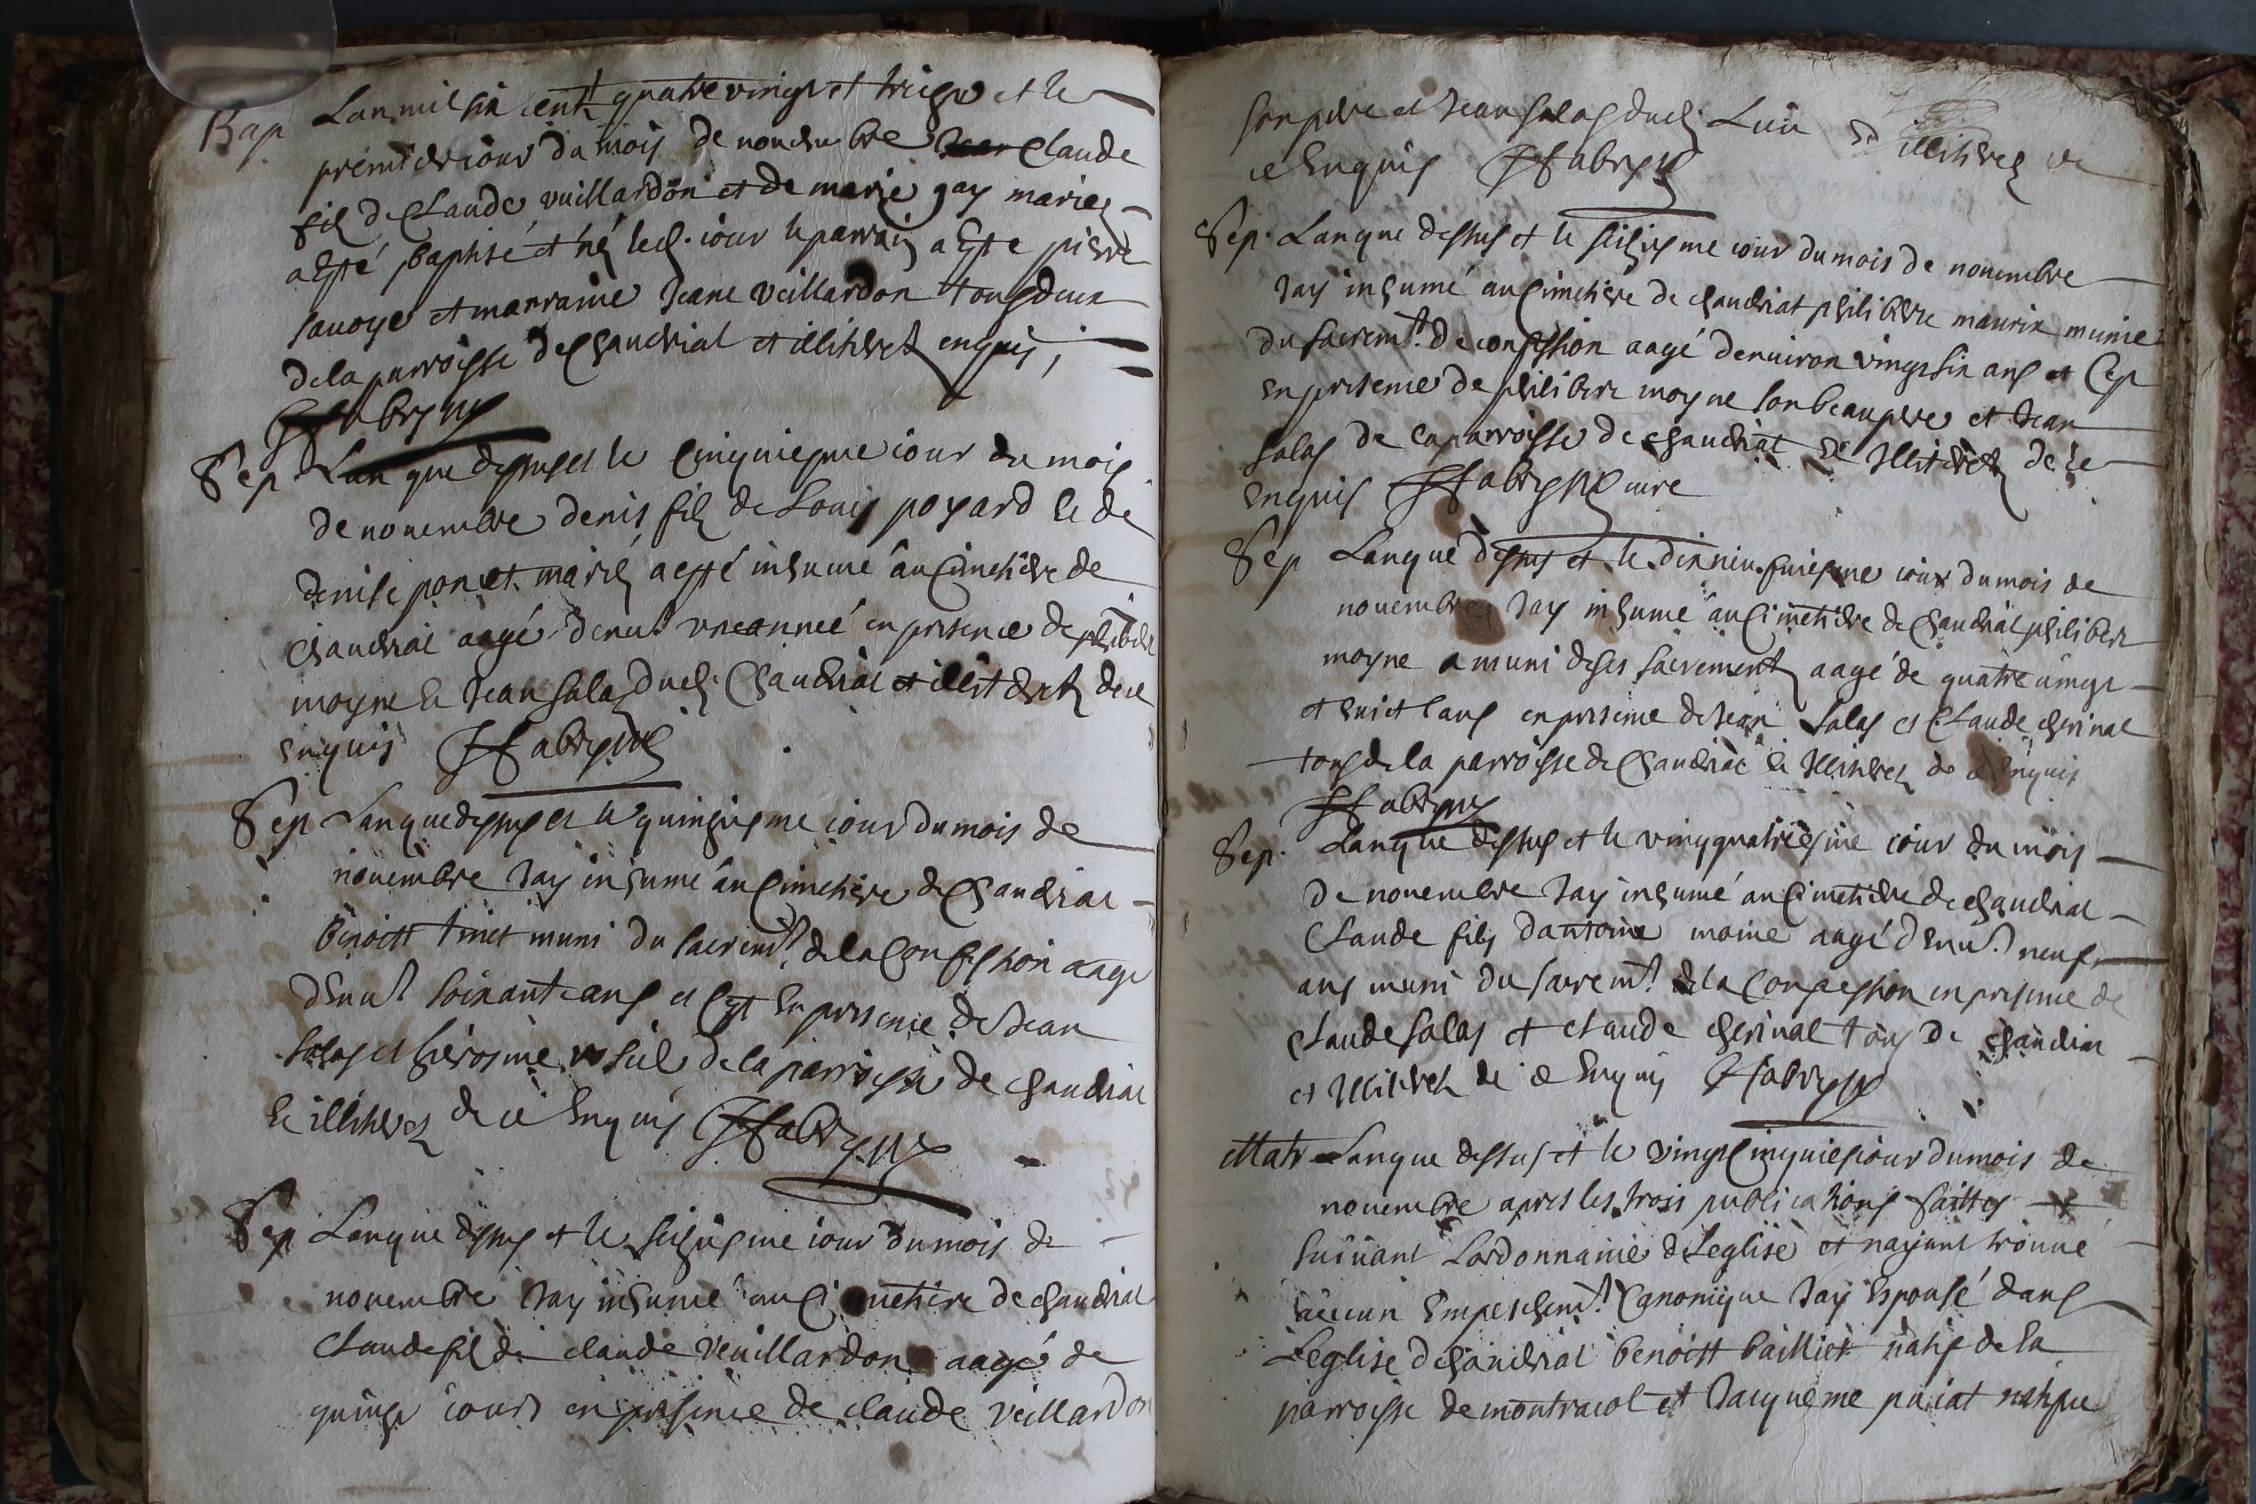 Bap Lan mil six cent quatre vingt et treize et le
premier iour du mois de nouembre Claude
fils de Claude vuillardon et de marie gay mariez
a esté baptisé et né led. iour le parrain a este pierre
sauoye et marraine Jeane veillardon tous deux
de la parroisse de Chaudriat et illiterez enquis
Fabry
Sep Lan que dessus et le Cinquiesme iour du mois
de nouembre denis fils de Louis poyard & de
denise ponet mariés a esté inhumé au Cimetiere de
Chaudriat aagé denut une année en presence de philibert
moyne & Jean Salas dud. Chaudriat et illiterez de ce
enquis Fabry
Sep Lan que dessus et le quinziesme iour du mois de
nouembre Jay inhumé au Cimetiere de Chaudriat
benoitt tinet muni du sacremt. de la Confession aagé
denut soixante ans et Cest en presence de Jean
Salas et hierosme de la parroisse de Chaudriat
& illiterez de ce enquis Fabry
Sep Lan que dessus et le seiziesme iour du mois de
nouembre Jay inhumé au Cimetiere de chaudriat
Claude fils de claude veuillardon aagé de
quinze iours en presence de claude veillardon
son pere et Jean Salas dud. Lieu & illiterez de
ce Enquis Fabry
Sep. Lan que dessus et le seiziesme iour du mois de nouembre
Jay inhumé au Cimetiere de chaudriat philibert maurin munie
du sacremt. de confession aagé denuiron vingt six ans et Cest
en presence de philibert moyne son beaupere et Jean
Salas de la parroisse de chaudriat & Illiterez de ce
Enquis Fabry cure
Sep Lan que dessus et le dixneufuiesme iour du mois de
nouembre Jay inhumé au Cimetiere de Chaudriat philibert
moyne muni de ses sacrements aagé de quatre uingt
et huict ans en presence de Jean Salas et Claude cherinal
tous de la parroisse de Chaudriat & Illiterez de ce Enquis
Fabry
Sep. Lan que dessus et le vingquatriesme iour du mois
de nouembre Jay inhumé au Cimetiere de chaudriat
Claude fils dantoine moine aagé denut neuf
ans muni du sacremt. de la Confession en presence de
Claude Salas et claude cherinal tous de chaudriat
et Illiterez de ce Enquis Fabry
Matr Lan que dessus et le vingt Cinquies iour du mois de
nouembre apres les trois publications faittes
suiuant Lordonnance de Leglise et nayant trouué
aucun Empeschemt. Canonique Jay Espousé dans
Leglise de Chaudriat benoitt bailliet natif de la
parroisse de montracol et Jacqueme puiat natifue